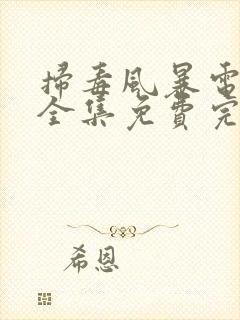 掃毒風暴電
全集免費完
希恩